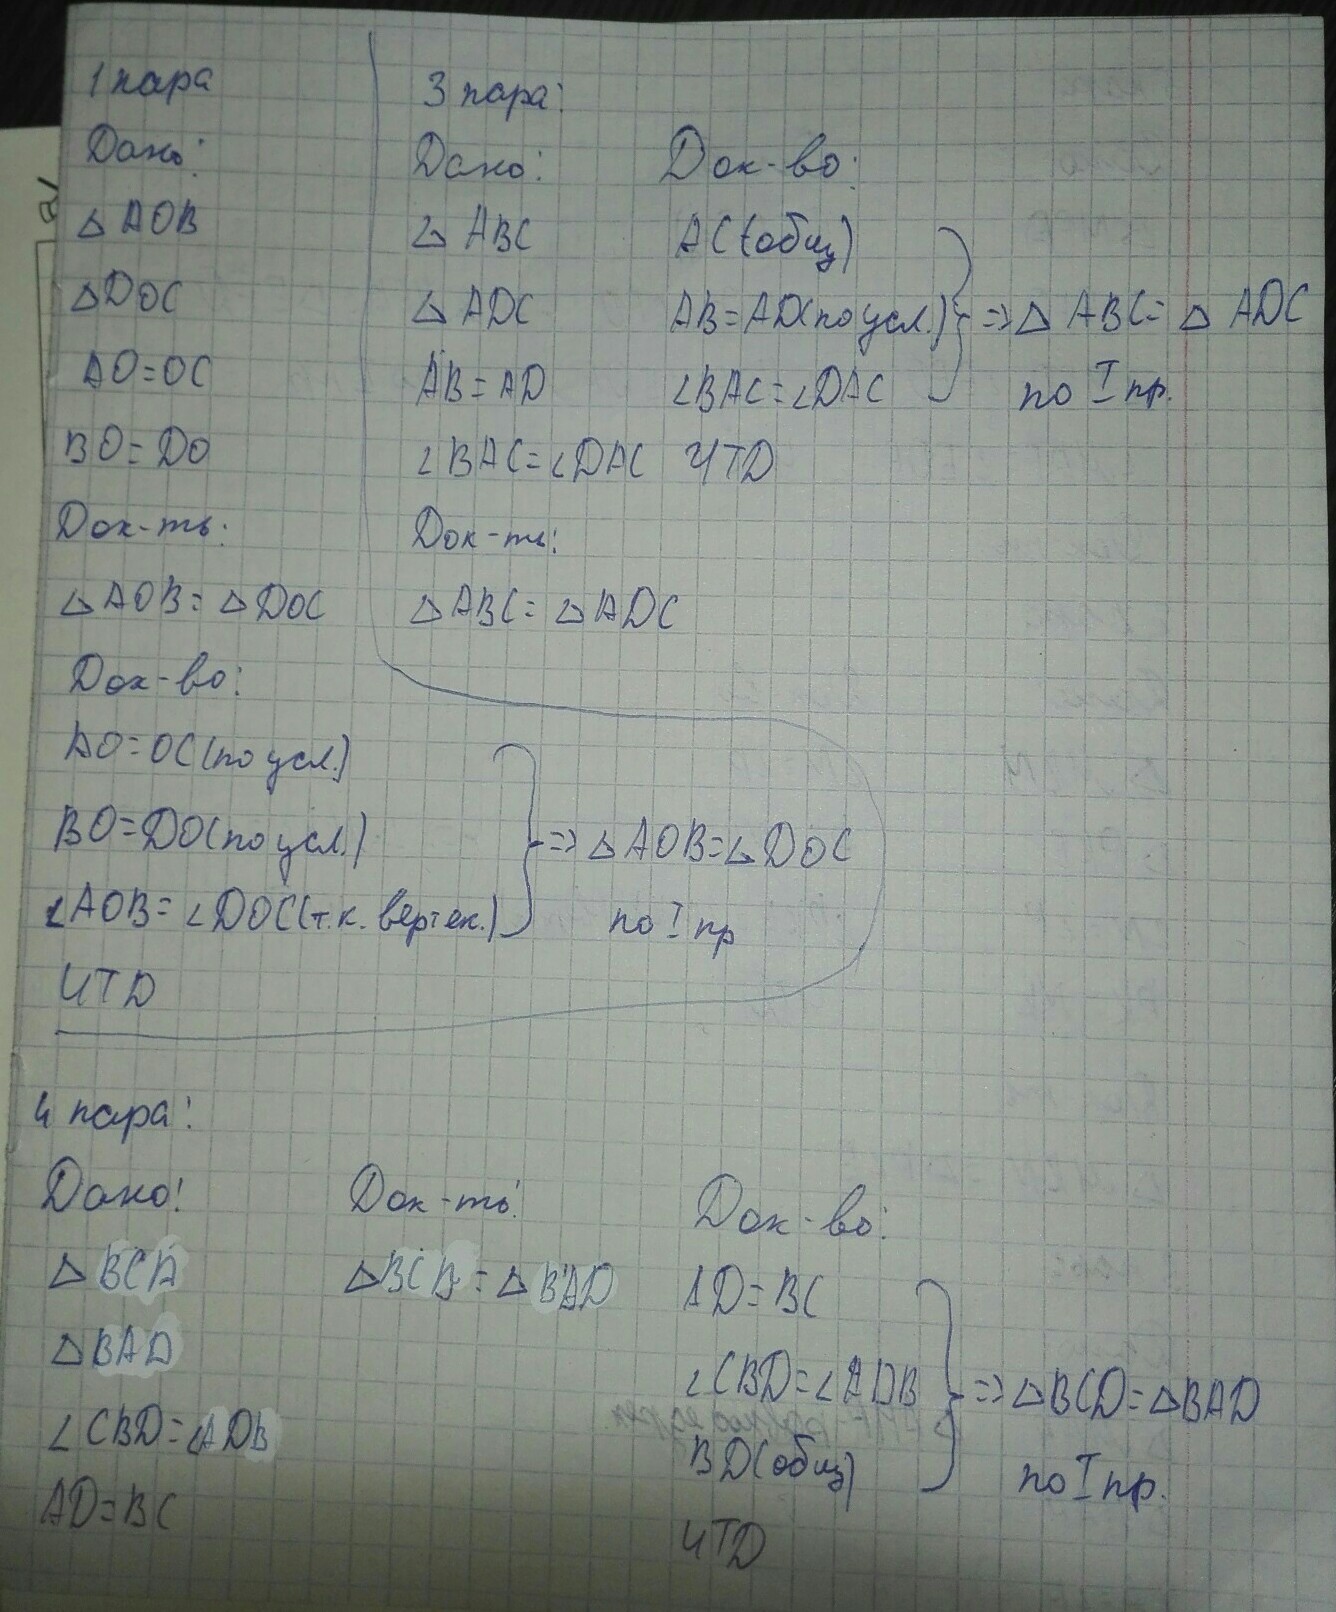 1 пара
Дано:
△ AOB
△DOC
AO=OC
BO=DO
Док-ть:
△AOB=△DOC
Док-во:
AO=OC(по усл.)
BO=DO(по усл.)
∠AOB=∠DOC(т.к. вертек.)
=>△AOB=△DOC
по I пр
ЧТD
3 пара:
Дано:
△ ABC
△ ADC
AB=AD
∠BAC=∠DAC
Док-ть:
△ABC=△ADC
Док-во:
AC(общ)
AB=AD(по усл.)
∠BAC=∠DAC
=>△ ABC=△ ADC
по I пр.
ЧТD
4 пара:
Дано:
△BCD
△BAD
∠CBD=∠ADB
AD=BC
Док-ть:
△BCD=△BAD
Док-во:
AD=BC
∠CBD=∠ADB
BD(общ)
=>△BCD=△BAD
по I пр.
ЧТD